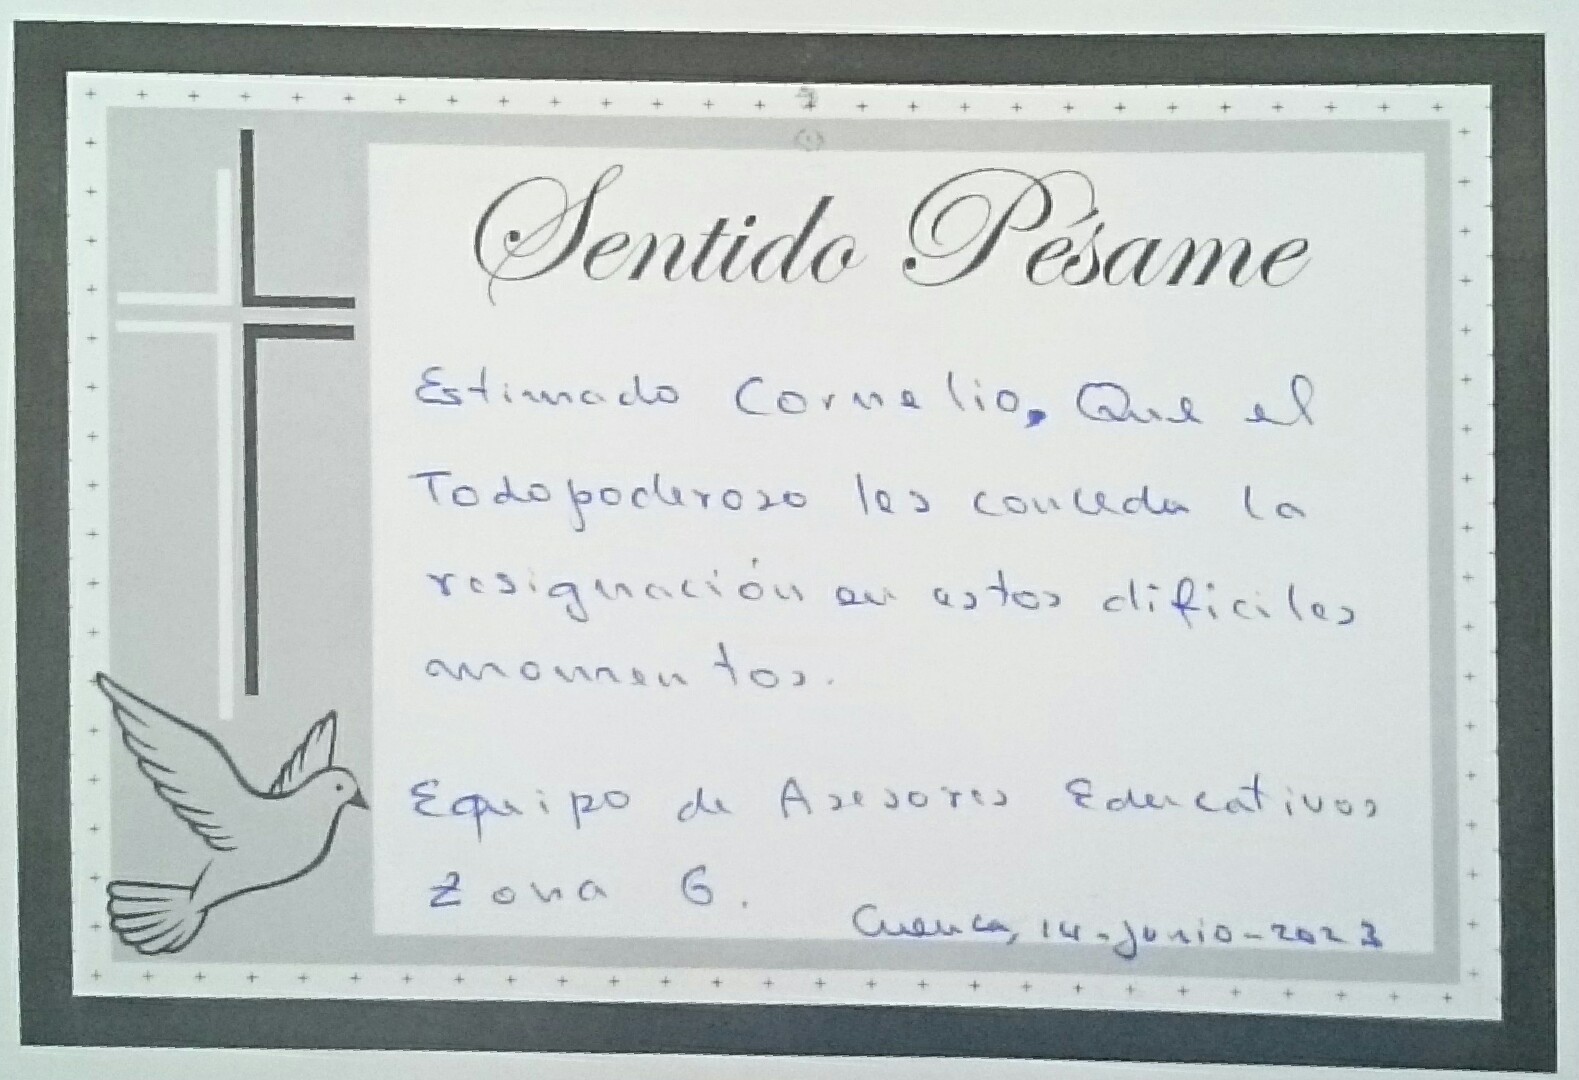 Sentido Pésame
Estimado Cornelio, Que el
Todopoderoso les conceda la
resignación en estos dificiles
momentos.
Equipo de Asesores Educativos
Zona 6.
Cuenca, 14-Junio-2023